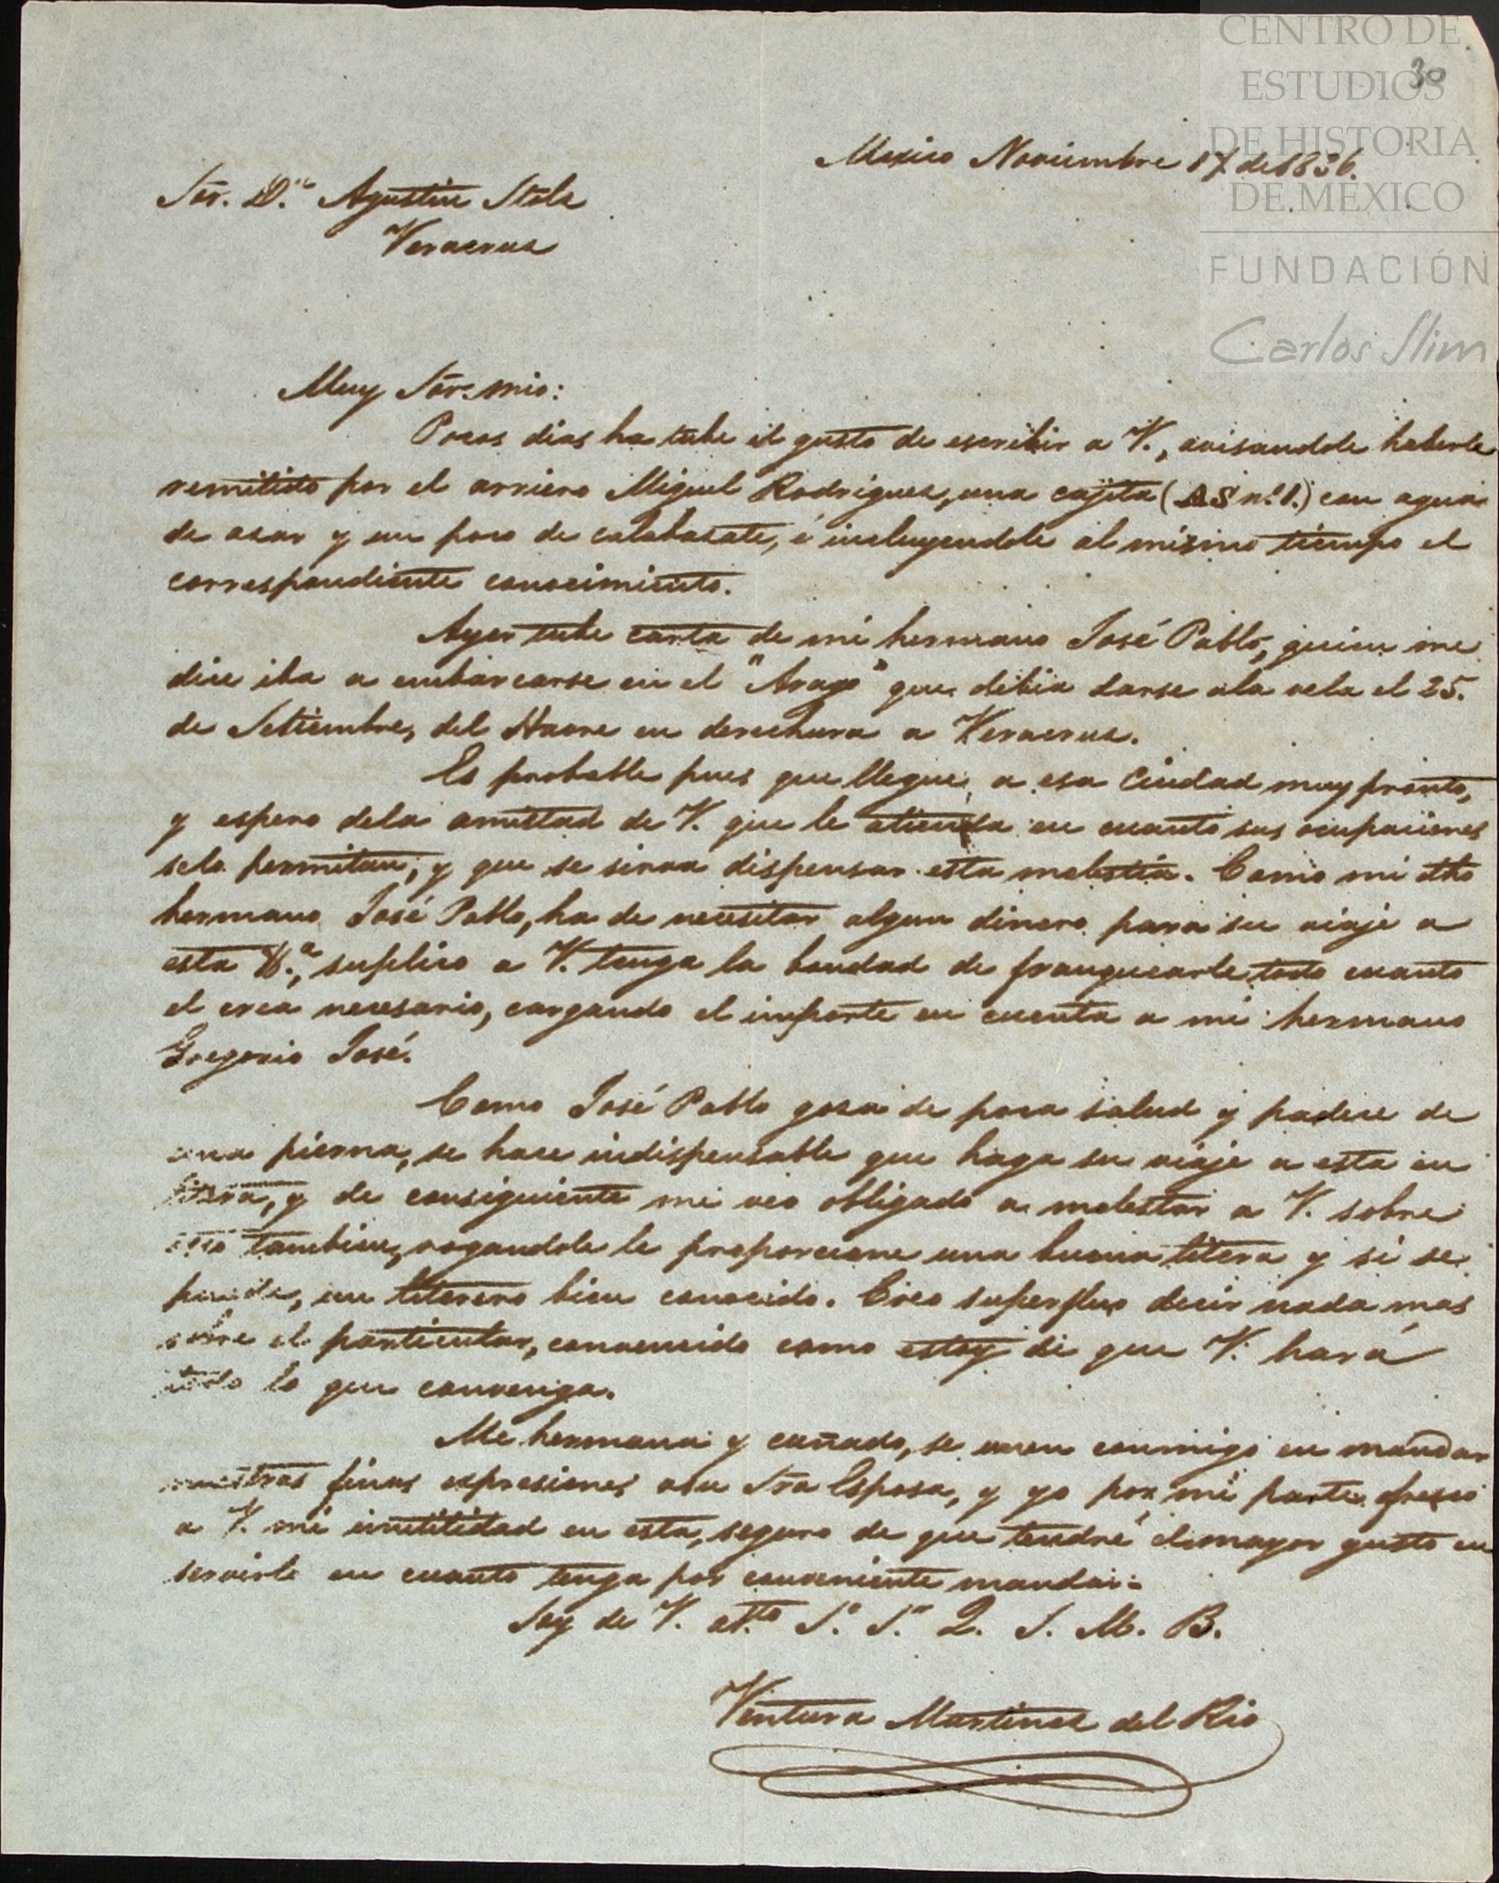 CENTRO DE
ESTUDIOS
30
DE HISTORIA
DE MÉXICO
FUNDACIÓN
Carlos Slim
Mexico Noviembre 17 de 1836.
Sōr. D.n Agustin
Veracruz
Muy Sōr. mio:
Pocos dias ha tube el gusto de escribir a V., avisandole haberle
remitido por el arriero Miguel Rodriguez, una cajita (AS nº. 1.) con agua
de azar y un poco de calabazate, é incluyendole al mismo tiempo el
correspondiente conocimiento.
Ayer tube carta de mi hermano José Pablo, quien me
dice iba a embarcarse en el "Arago" que debia darse ala vela el 25.
de Setiembre, del Havre en derechura a Veracruz.
Es probable pues que llegue a esa Ciudad muy pronto,
y espero dela amistad de V. que le atienda en cuanto sus ocupaciones
selo permitan, y que se sirva dispensar esta molestia. Como mi dho
hermano José Pablo, ha de necesitar algun dinero para su viaje a
esta suplico a V. tenga la bondad de franquearle todo cuanto
el crea necesario, cargando el importe en cuenta a mi hermano
Gregorio José.
Como José Pablo goza de poca salud y padece de
una pierna, se hace indispensable que haga su viaje a esta en
litera, y de consiguiente me veo obligado a molestar a V. sobre
eso tambien, rogandole le proporcione una buena litera y si se
puede, un literero bien conocido. Creo superfluo decir nada mas
sobre el particular, convencido como estoy de que V. hará
todo lo que convenga.
Mi hermana y cuñado, se unen conmigo en mandar
nuestras finas expresiones asu Sra Esposa, y yo por mi parte ofrezco
a V. mi inutilidad en esta, seguro de que tendré el mayor gusto en
servirle en cuanto tenga por conveniente mandar.
Soy de V. at.to S.o S.r Q. S. M. B.
Ventura Martinez del Rio